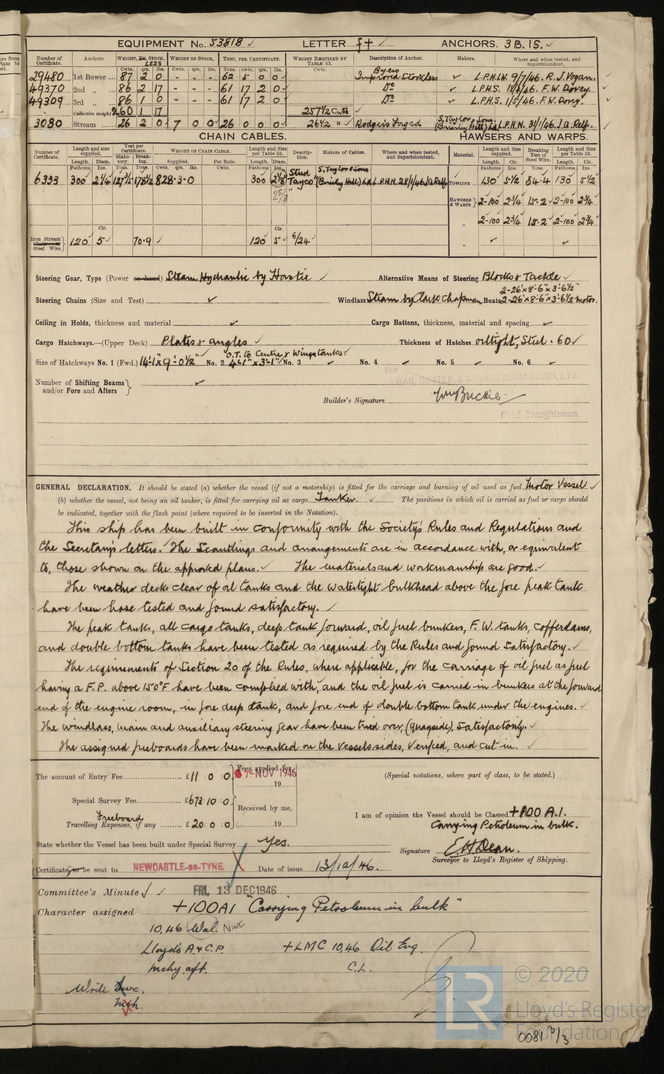 EQUIPMENT No. 53818 LETTER f+ ANCHORS. 3 B. 1 S.
Number of Certificate. Anchors. WEIGHT, EX. STOCK. LESS WEIGHT OF STOCK. TEST, PER CERTIFICATE. WEIGHT REQUIRED BY TABLE 53. Description of Anchor. Makers. Where and when tested, and Superintendent.
29480 1st Bower 87 2 0 - - - 62 5 0 0 Byers Improved Stockless L.P.H.W. 9/7/46. R.J. Vogan.
49370 2nd " 86 2 17 - - - 61 17 2 0 Do L.P.H.S. F.W. Dovey.
49309 3rd " 86 1 0 - - - 61 17 2 0 Do L.P.H.S. F.W. Dovey.
Collective weight 260 1 17 257½ Cwts
3080 Stream 26 2 0 7 0 0 26 0 0 0 26½ " Rodgers Forged S. Taylor & Sons (Brierley Hill) Ltd L.P.H.N. 31/1/46. J.A. Relf.
CHAIN CABLES. HAWSERS AND WARPS.
Number of Certificate. Length and size supplied. Test per Certificate. WEIGHT OF CHAIN CABLE. Length and Size per Table 53. Description. Makers of Cables. Where and when tested, and Superintendent. Material. Length and Size supplied. Breaking Test of Steel Wire. Length and Size per Table 53.
6333 300 828-3-0 300 Stud Tayco S. Taylor & Sons (Brierley Hill) Ltd L.P.H.N. 28/1/46 J.A. Relf TOWLINE 130 5½ 84.4 130 5½
HAWSERS & WARPS 2-100 2¾ 18.2 2-100 2¾
2-100 2¾ 18.2 2-100 2¾
Iron Stream Chain or Steel Wire 120 5 70.9 120 5 6/24
Steering Gear, Type (Power or hand) Steam Hydraulic by Hastie Alternative Means of Steering Blocks & Tackle
Steering Chains (Size and Test) Windlass Steam by Clark Chapman. Boats 2-26'×8'-6"×3'-6½" 2-26'×8'-6"×3'-6½" motor.
Ceiling in Holds, thickness and material Cargo Battens, thickness, material and spacing
Cargo Hatchways.—(Upper Deck) Plates & angles Thickness of Hatches oiltight, Steel .60
Size of Hatchways No. 1 (Fwd.) 14'-1"×9'-0½" No. 2 O.T. to Centre & Wing tanks. 4'-1"×3'-1" No. 3 No. 4 No. 5 No. 6
Number of Shifting Beams and/or Fore and Afters
For SWAN, HUNTER, & WIGHAM RICHARDSON, LTD
Builder's Signature
Chief Draughtsman.
GENERAL DECLARATION. It should be stated (a) whether the vessel (if not a motorship) is fitted for the carriage and burning of oil used as fuel Motor Vessel
(b) whether the vessel, not being an oil tanker, is fitted for carrying oil as cargo Tanker. The positions in which oil is carried as fuel or cargo should
be indicated, together with the flash point (where required to be inserted in the Notation).
This ship has been built in conformity with the Society's Rules and Regulations and
the Secretary's letters. The Scantlings and arrangements are in accordance with, or equivalent
to, those shown on the approved plans. The materials and workmanship are good.
The weather decks clear of oil tanks and the watertight bulkhead above the fore peak tank
have been hose tested and found satisfactory.
The peak tanks, all cargo tanks, deep tank forward, oil fuel bunkers, F.W. tanks, cofferdams,
and double bottom tanks have been tested as required by the Rules and found Satisfactory.
The requirements of Section 20 of the Rules, where applicable, for the carriage of oil fuel as fuel
having a F.P. above 150°F have been complied with, and the oil fuel is carried in bunkers at the forward
end of the engine room, in fore deep tank, and fore end of double bottom tank under the engines.
The windlass, main and auxiliary steering gear have been tried over, (Quayside), Satisfactorily.
The assigned freeboards have been marked on the vessels sides, verified, and cut in.
The amount of Entry Fee £11 0 0 Fees applied for, 7- NOV 1946 (Special notations, where part of class, to be stated.)
19
Special Survey Fee £673 10 0 Received by me, I am of opinion the Vessel should be Classed +100 A.1.
Freeboard Carrying Petroleum in bulk.
Travelling Expenses, if any £20 0 0 19
State whether the Vessel has been built under Special Survey Yes. Signature E.H. Dean.
Surveyor to Lloyd's Register of Shipping.
Certificate to be sent to NEWCASTLE-on-TYNE. Date of issue 13/12/46.
Committee's Minute FRI. 13 DEC 1946
Character assigned +100A1 "Carrying Petroleum in bulk"
10,46
Lloyd's A & C.P. +LMC 10,46 Oil Eng.
Mchy aft. C.L.
Write
Mch.
© 2020
LR
Lloyd's Register
Foundation
0081 3/3